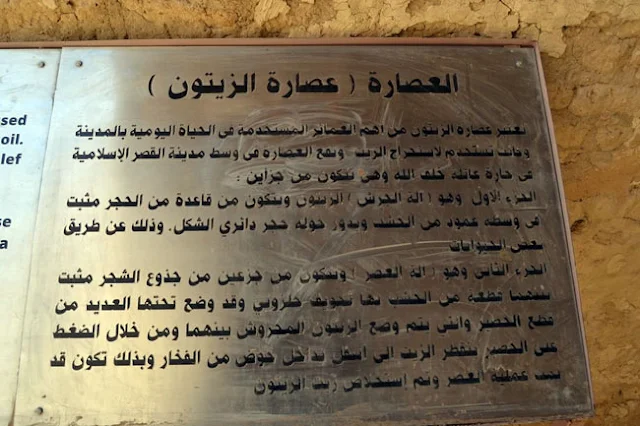 sed
oil.
lef
se
a
العصارة ( عصارة الزيتون )
يعتبر عصارة الزيتون من اهم العمائر المستخدمة فى الحياة اليومية بالمدينة
وكانت تستخدم لاستخراج الزيت وتقع العصارة فى وسط مدينة القصر الإسلامية
فى حارة عائلة خلف الله وهى تتكون من جزاين :
الجزء الاول وهو ( الة الجرش ) الزيتون ويتكون من قاعدة من الحجر مثبت
فى وسطه عمود من الخشب ويدور حوله حجر دائري الشكل. وذلك عن طريق
بعض الحيوانات
الجزء الثانى وهو ( الة العصر ) ويتكون من جزعين من جذوع الشجر مثبت
بينهما قطعه من الخشب بها تجويف حلزونى وقد وضع تحتها العديد من
قطع الحصير والتى يتم وضع الزيتون المجروش بينهما ومن خلال الضغط
على الحصير يتقطر الزيت الى اسفل بداخل حوض من الفخار وبذلك تكون قد
تمت عملية العصر وتم استخلاص زيت الزيتون